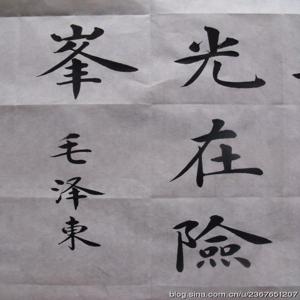 光在險
峯
毛泽東
blog.sina.com.cn/u/2367651207